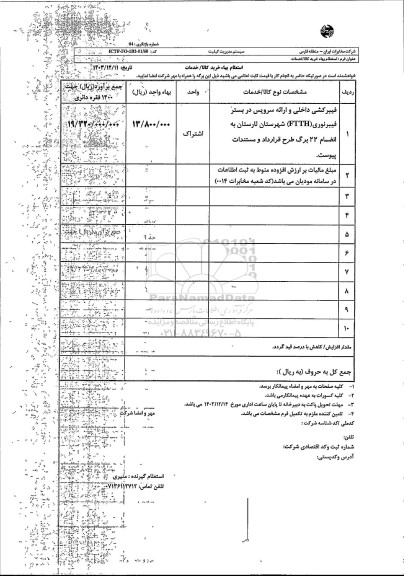 شرکت مخابرات ایران - منطقه فارس
سیستم مدیریت کیفیت
شماره بازنگری: 04
عنوان فرم: استعلام بهاء خرید کالا/خدمات
استعلام بهاء خرید کالا/خدمات
تاریخ: ۱۴۰۳/۱۲/۱۱
خواهشمند است در صورتیکه حاضر به انجام کار با قیمت ثابت اعلامی می باشید ذیل این برگه را همراه با مهر شرکت امضا نمایید.
ردیف
مشخصات نوع کالا/خدمات
واحد
بهاء واحد (ریال)
جمع برآورد(ریال) جهت ۱۴۰۰ فقره دائری
۱
فیبرکشی داخلی و ارائه سرویس در بستر
فیبرنوری(FTTH) شهرستان لارستان به
انضمام ۲۲ برگ طرح قرارداد و مستندات
پیوست.
اشتراک
۱۳/۸۰۰/۰۰۰
۱۹/۳۲۰/۰۰۰/۰۰۰
۲
مبلغ مالیات بر ارزش افزوده منوط به ثبت اطلاعات
در سامانه مودیان می باشد(کد شعبه مخابرات ۰۰۱۴)
۳
۴
۵
۶
۷
۸
۹
۱۰
ParsNamadData
پایگاه اطلاع رسانی مناقصه و مزایده
۰۲۱-۸۸۳۴۹۶۷۰-۵
مقدار افزایش/ کاهش با درصد قید گردد.
جمع کل به حروف (به ریال ):
۱- کلیه صفحات به مهر و امضاء پیمانکار برسد.
۲- کلیه کسورات به عهده پیمانکار می باشد.
۳- مهلت تحویل پاکت به دبیرخانه تا پایان ساعت اداری مورخ ۱۴۰۳/۱۲/۱۴ می باشد.
۴- تامین کننده ملزم به تکمیل فرم مشخصات می باشد.
مهر و امضا شرکت
کدملی /کد شناسه شرکت:
تلفن:
شماره ثبت وکد اقتصادی شرکت:
آدرس وکدپستی:
استعلام گیرنده : منیری
تلفن تماس: ۰۷۱۳۶۱۱۲۷۱۲